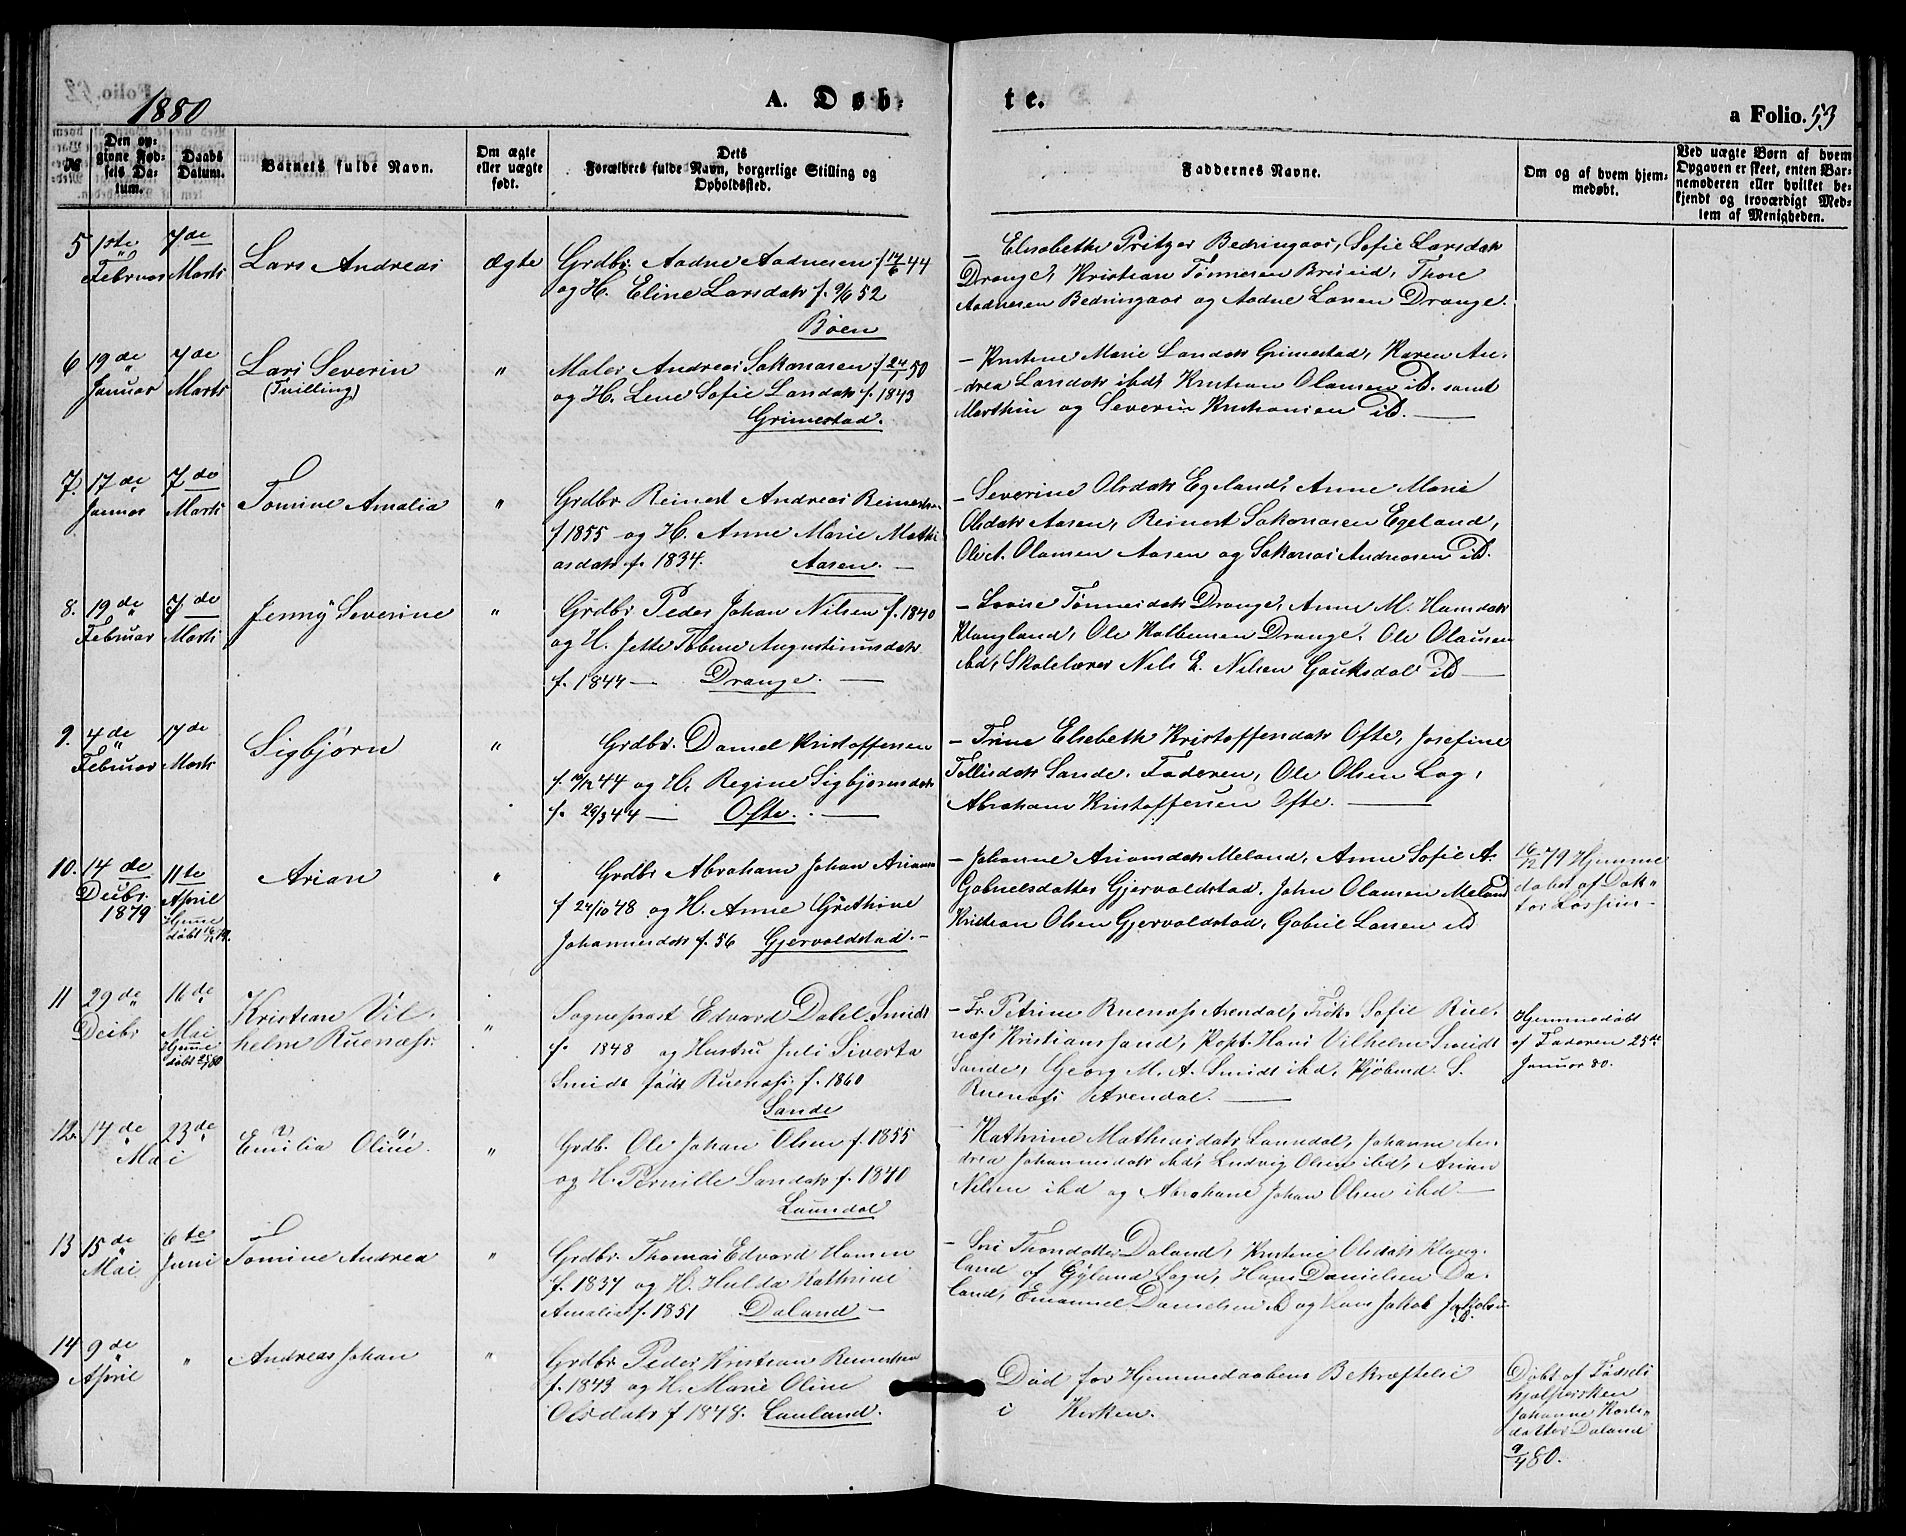 1880
A. Døb-
te.
a Folio. 53
№
Den op-
givne Fød-
sels Da-
tum.
Daabs
Datum.
Barnets fulde Navn.
Om ægte
eller uægte
født.
Dets
Forældres fulde Navn, borgerlige Stilling og
Opholdssted.
Faddernes Navne.
Om og af hvem hjem-
medøbt.
Ved uægte Børn af hvem
Opgaven er skeet, enten Bar-
nemoderen eller hvilket be-
kjendt og troværdigt Med-
lem af Menigheden.
5
1ste Februar
7de Marts
Lars Andreas
ægte
Grdbr. Aadne Aadnesen f 14/6 44
og H. Eline Larsdatr f. 9/6 52
Böen
Elisabeth Pritzer Bedringaas, Sofie Larsdatr
Drange, Kristian Tønnesen Briseid, Thore
Aadnesen Bedringaas og Aadne Larsen Drange.
6
19de Januar
7de Marts
Lars Severin
(Tvilling)
"
Maler Andreas Sakonasen f 24/1 50
og H. Lene Sofie Larsdatr f. 1843
Grimestad.
Marie Larsdatr Grimestad, Karen An-
drea Larsdatr ibd, Kristian Olausen iD. samt
Marthin og Severin Kristiansen iD.
7.
17de Januar
7de Marts
Tomine Amalia
"
Grdbr Reinert Andreas Reinertsen
f 1855 og H. Anne Marie Mathi
asdatr f. 1834. Aasen.
– Severine Olsdatr Egeland, Anne Marie
Olsdatr Aasen, Reinert Sakonasen Egeland,
Olaus Aasen og Sakonas Andreasen iD.
8.
19de Februar
7de Marts
Jenny Severine
"
Grdbr Peder Johan Nilsen f. 1840
og H. Jette Tobine Augustinusdatr
f. 1844 – Drange.
– Lovise Tønnesdatr Drange, Anne M. Hansdatr
Klungland, Ole Kolbensen Drange. Ole Olausen
ibd, Skolelærer Nils E. Nilsen Gauksdal iD
9.
4de Februar
7de Marts
Sigbjørn
"
Grdbr. Daniel Kristoffersen
f. 12/12 44 og H. Regine Sigbjørnsdatr
f. 29/3 44 – Ofte.
– Trine Elsebeth Kristoffersdatr Ofte, Josefine
Tollisdatr Sande. Faderen, Ole Olsen Log,
Abraham Kristoffersen Ofte.
10.
14de Decbr. 1879
11te April
Hjemme
døbt 16/12 79.
Arian
"
Grdbr Abraham Johan Ariansen
f 24/10 48 og H. Anne Grethine
Johannesdatr f. 56 Gjervoldstad.
– Johanne Ariansdatr Meland, Anne Sofie A.
Gabrielsdatter Gjervoldstad. John Olausen Meland
Kristian Olsen Gjervoldstad, Gabriel Larsen iD
16/12 79 Hjemme
døbt af Dok-
tor
11
29de Decbr
16de Mai
Hjemme
døbt 25/1 80
Kristian Vil-
helm Ruenæss
"
Sogneprest Edvard Dahl Smidt
f. 1848 og Hustru Juli Siverta
Smidt født Ruenæss. f. 1860
Sande
– Fr. Petrine Ruenæss Arendal, Frøk. Sofie Rue-
næss Kristianssand, Kapt. Hans Vilhelm Smidt
Sande, Georg M. A. Smidt ibd, Kjøbmd. S.
Ruenæss Arendal.
Hjemmedøbt
af Faderen 25de
Januar 80.
12.
14de Mai
23de
Emilia Oline.
"
Grdb. Ole Johan Olsen f. 1855
og H. Pernille Larsdatr f. 1840
Laundal
– Kathrine Mathiasdatr Laundal, Johanne An-
drea Johannesdatr ibd, Ludvig Olsen ibd, Arian
Nilsen ibd og Abraham Johan Olsen ibd
13
15de Mai
6te Juni
Tomine Andrea
"
Grdbr. Thomas Edvard Hansen
f. 1837 og H. Hulda Kathrine
Amalie f. 1851 Daland –
– Siri Thorsdatter Daland, Kristine Olsdatr Klung-
land af Gyland Sogn, Hans Danielsen Da-
land, Emanuel Danielsen iD og Hans Jakob Jakobsen
iD.
14
9de April
"
Andreas Johan
"
Grdbr Peder Kristian Reinertsen
f. 1843 og H. Marie Oline
Olsdatr f 1848. Lauland.
Død før Hjemmedaabens Bekræftelse
i Kirken.
Døbt af Fødsels
hjælpersken
Johanne Karls-
datter Daland
9/4 80.